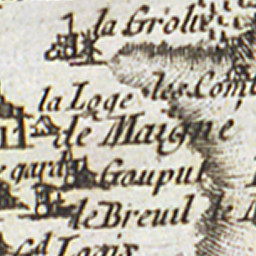 la Grolle
la Loge des Comt
de Maigné
gard
Goupul
le Breuil de
Logis